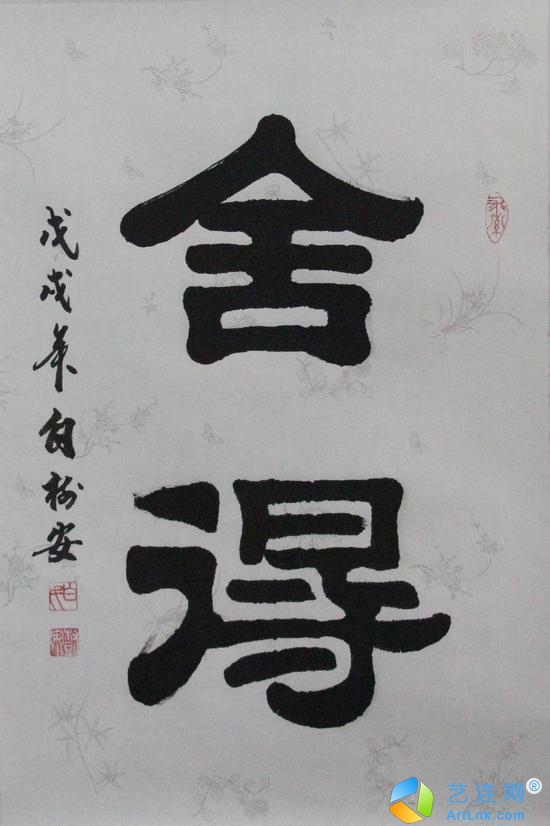 舍得
戊戌年白树安
艺连网®
ArtLnk.com